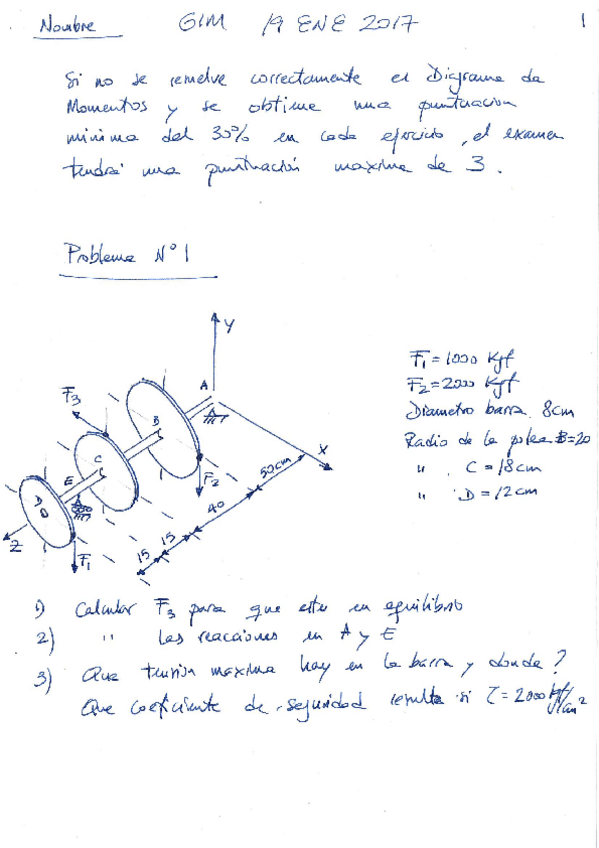 Nombre GIM 19 ENE 2017 1
Si no se resuelve correctamente el Diagrama de
Momentos y se obtiene una puntuacion
minima del 30% en cada ejercicio, el examen
tendrá una puntuación maxima de 3.
Problema Nº 1
Y
A
F3
B
X
C
E
F2
50cm
D
40
Z
F1
15
15
F1 = 1000 Kgf
F2 = 2000 Kgf
Diametro barra 8cm
Radio de la polea B=20
" . C = 18cm
" . D = 12cm
1) Calcular F3 para que este en equilibrio
2) " las reacciones en A y E
3) Que tension maxima hay en la barra y donde?
Que coeficiente de seguridad resulta si τ = 2000 kgf/cm²